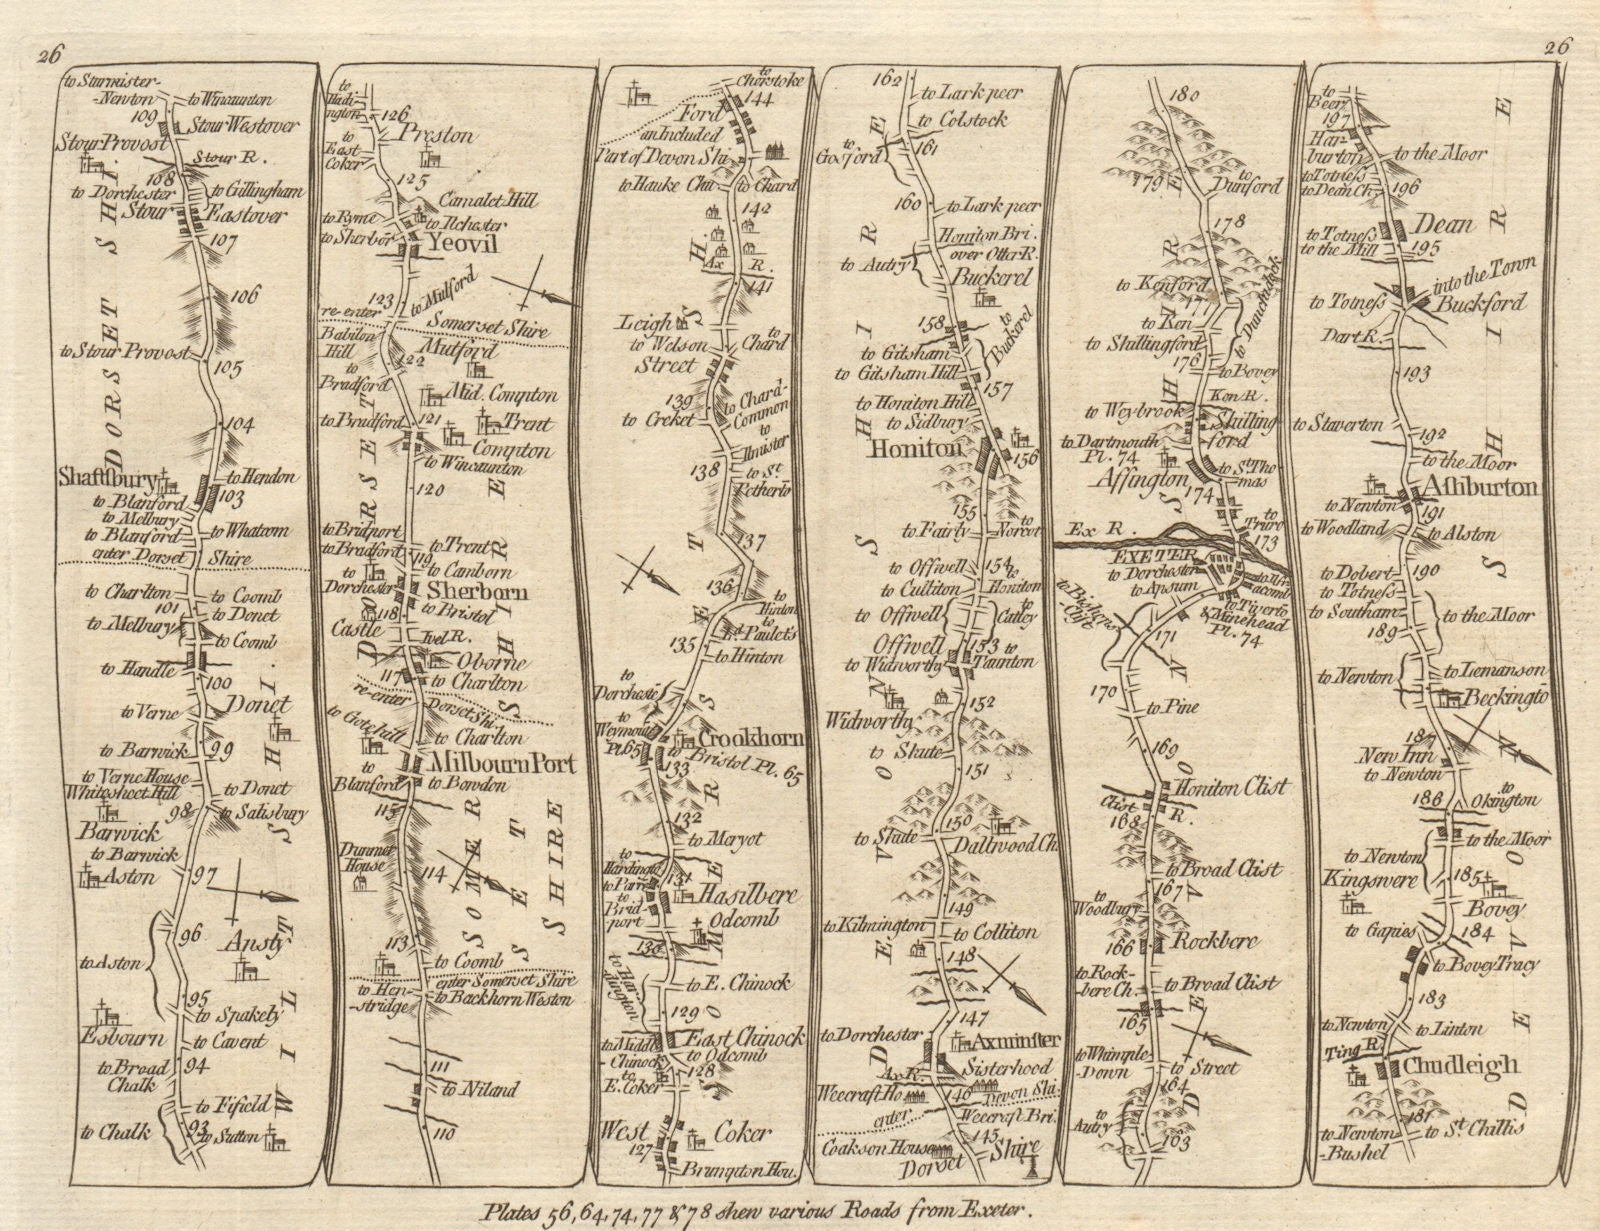 26
26
to Sturmister-
-Newton
to Wincaunton
109
Stour Westover
Stour Provost
Stour R.
108
to Dorchester
to Gillingham
Stour
Eastover
107
106
to Stour Provost
105
104
DORSET SHI.
Shaftsbury
to Hendon
103
to Blanford
to Melbury
to Blanford
to Whatcom
enter Dorset
Shire
to Charlton
to Coomb
101
to Donet
to Melbury
to Coomb
to Handle
100
Donet
to Verne
99
to Barwick
to Verne House
Whitesheet Hill
to Donet
98
to Salisbury
Barwick
to Barwick
Aston
97
96
Ansty
to Aston
95
to Spakely
Esbourn
to Cavent
to Broad
Chalk
94
to Fifield
to Chalk
93
to Sutton
WILT SHI.
to
Hadi-
ngton
126
Preston
to
East
Coker
125
Camalet Hill
to Ryme
to Ilchester
to Sherbor
Yeovil
123
to Mulford
re-enter
Somerset Shire
Babilon
Hill
Mutford
122
to
Bradford
Mid. Compton
to Bradford
121
Trent
Compton
to Wincaunton
120
to Bridport
to Bradford
to Trent
119
to Camborn
to
Dorchester
Sherborn
118
to Bristol
Castle
Ivel R.
Oborne
117
to Charlton
re-enter
Dorset Shi.
to Gotehill
to Charlton
Milbourn Port
to
Blanford
to Bowdon
115
Dunmer
House
114
113
to Coomb
enter Somerset Shire
to Hen-
-stridge
to Backhorn Weston
111
to Niland
110
DORSET SHIRE
SOMERSET SHIRE
to
Charstoke
144
Ford
an Included
Part of Devon Shi.
to Hauke Chu.
to Chard
142
Ax R.
141
Leigh
to Welson
to
Chard
Street
139
to Chard-
Common
to Creket
to
Ilmister
138
to St.
Fetherto
137
136
to
Hinton
to
Ld. Paulet's
135
to Hinton
to
Dorchester
to
Weymouth
Pl. 65
Crookhorn
to
Bristol Pl. 65
133
132
to Maryot
to
Hardingto
131
to Parre
Hasilbere
to
Brid-
port
Odcomb
130
to Har-
dington
to E. Chinock
129
East Chinock
to Middle
-Chinock
to Odcomb
128
to
E. Coker
West
Coker
127
Brumpton Hou.
SOMERSET SH.
162
to Lark peer
to Colstock
to
Gosford
161
160
to Lark peer
Honiton Bri.
over Otter R.
to Autry
Buckerel
158
to
Buckerel
to Gitsham
to Gitsham Hill
157
to Honiton Hill
to Sidbury
Honiton
156
155
to Fairly
to
Norcot
to Offwell
154
to Culliton
to
Honiton
to Offwell
to
Catley
Offwell
153
to
Taunton
to Widworthy
152
Widworthy
to Shute
151
150
to Shute
Dallwood Ch.
149
to Kilmington
to Colliton
148
147
to Dorchester
Axminster
Sisterhood
Ax R.
Weecraft Ho.
146
Devon Shi.
enter
Weecraft Bri.
145
Coakson House
Dorset
Shire
DEVON SHIRE
180
179
to
Dunford
178
to Kenford
177
to Dunchidock
to Ken
to Shillingford
176
to Bovey
Ken R.
to Weybrook
Shilling
ford
to Dartmouth
Pl. 74
Affington
to St. Tho
mas
174
to
Truro
173
Ex R.
EXETER
to Dorchester
to Apsum
to Bishops
Clist
to Tiverto
& Minehead
Pl. 74
171
170
to Pine
169
Honiton Clist
Clist
R.
168
to Broad Clist
167
to
Woodbury
166
Rockbere
to Rock-
-bere Ch.
to Broad Clist
165
to Whimple-
-Down
to Street
164
to
Autry
163
DEVON SHIRE
to
Beer
197
Har-
burton
to the Moor
to Totness
to Dean Ch.
196
Dean
to Totness
to the Mill
195
into the Town
to Totness
Buckford
Dart R.
193
to Staverton
192
to the Moor
Ashburton
to Newton
191
to Woodland
to Alston
to Dobert
190
to Totness
to Southam
to the Moor
189
to Newton
to Lemanson
Beckingto
187
New Inn
to Newton
to
Okington
186
to the Moor
to Newton
Kingswere
185
Bovey
to Gapies
184
to Bovey Tracy
183
to Newton
to Linton
Ting R.
Chudleigh
181
to Newton
-Bushel
to St. Chillis
DEVON SHIRE
Plates 56, 64, 74, 77 & 78 shew various Roads from Exeter.